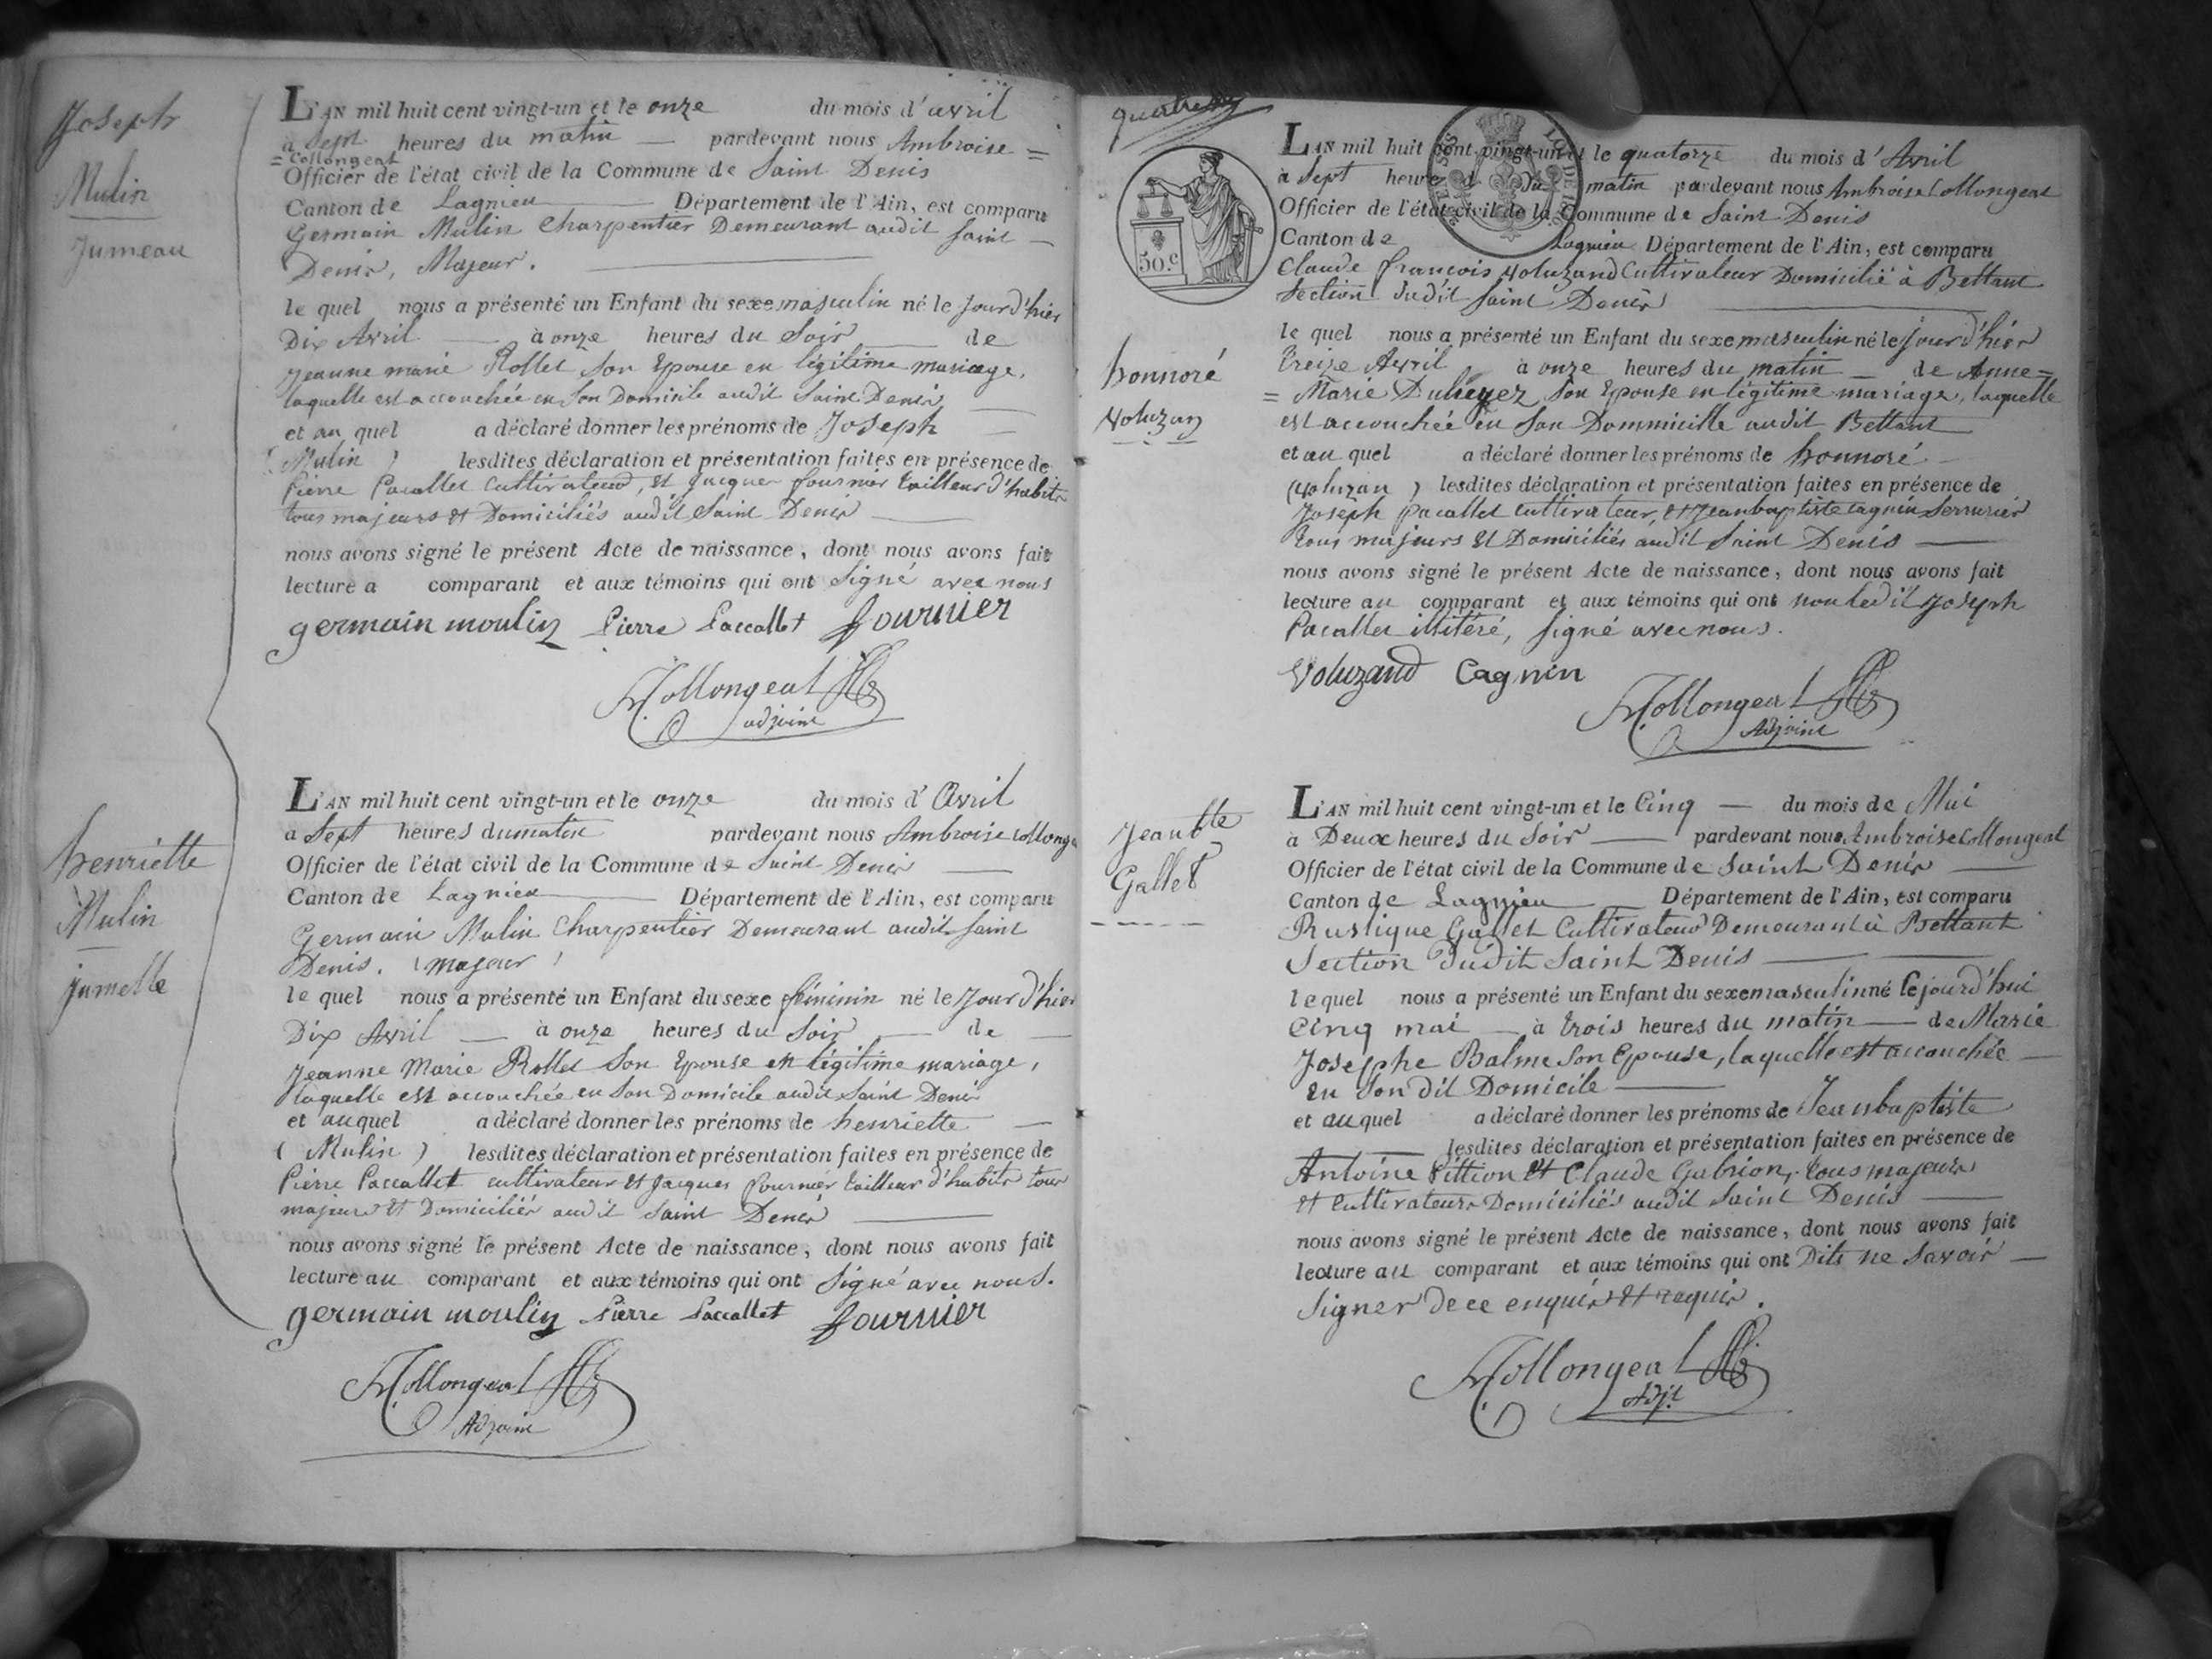 Joseph
Mulin
Jumeau
L'AN mil huit cent vingt-un et le onze du mois d'avril
à Sept heures du matin — pardevant nous Ambroise =
= Collongeat
Officier de l'état civil de la Commune de Saint Denis
Canton de Lagnieu — Département de l'Ain, est comparu
Germain Mulin Charpentier Demeurant audit Saint —
Denis, Majeur. —
le quel nous a présenté un Enfant du sexe masculin né le Jour d'hier
Dix Avril — à onze heures du Soir — de
Jeanne marie Rollet Son Epouse en légitime mariage,
laquelle est accouchée en Son Domicile audit Saint Denis —
et au quel a déclaré donner les prénoms de Joseph —
( Mulin ) lesdites déclaration et présentation faites en présence de
Pierre Pacallet Cultivateur, et Jacques fournier tailleur d'habits
tous majeurs et Domiciliés audit Saint Denis —
nous avons signé le présent Acte de naissance, dont nous avons fait
lecture a comparant et aux témoins qui ont Signé avec nous
germain moulin Pierre Paccallet fournier
Collongeat
adjoint
henriette
Mulin
jumelle
L'AN mil huit cent vingt-un et le onze du mois d'Avril
a Sept heures du matin pardevant nous Ambroise Collonge
Officier de l'état civil de la Commune de Saint Denis —
Canton de Lagnieu — Département de l'Ain, est comparu
Germain Mulin Charpentier Demeurant audit Saint
Denis. ( majeur )
le quel nous a présenté un Enfant du sexe féminin né le Jour d'hier
Dix Avril — à onze heures du Soir — de —
Jeanne Marie Rollet Son Epouse en légitime mariage,
laquelle est accouchée en Son Domicile audit Saint Denis
et auquel a déclaré donner les prénoms de henriette —
( Mulin ) lesdites déclaration et présentation faites en présence de
Pierre Paccallet cultivateur et Jacques fournier tailleur d'habits tous
majeurs et Domiciliés audit Saint Denis —
nous avons signé le présent Acte de naissance, dont nous avons fait
lecture au comparant et aux témoins qui ont Signé avec nous.
germain moulin Pierre Paccallet fournier
Collongeat
Adjoint
50.c
honnoré
Voluzan
L'AN mil huit cent vingt-un et le quatorze du mois d'Avril
à Sept heures du matin pardevant nous Ambroise Collongeat
Officier de l'état civil de la Commune de Saint Denis
Canton de Lagnieu Département de l'Ain, est comparu
Claude françois Voluzand Cultivateur Domicilié à Bettant
Section dudit Saint Denis —
le quel nous a présenté un Enfant du sexe masculin né le jour d'hier
treize Avril à onze heures du matin — de Anne =
= Marie Son Epouse en légitime mariage, laquelle
est accouchée en Son Dommicille audit Bettant
et au quel a déclaré donner les prénoms de honnoré —
(Voluzan ) lesdites déclaration et présentation faites en présence de
Joseph pacallet cultivateur, et Jeanbaptiste Cagnin Serrurier
tous majeurs et Domiciliés audit Saint Denis —
nous avons signé le présent Acte de naissance, dont nous avons fait
lecture au comparant et aux témoins qui ont non ledit Joseph
Pacallet illitéré, signé avec nous.
Voluzand Cagnin
Collongeat
Adjoint
Jeanbte
Gallet
L'AN mil huit cent vingt-un et le Cinq — du mois de Mai
à Deux heures du Soir — pardevant nous Ambroise Collongeat
Officier de l'état civil de la Commune de Saint Denis —
Canton de Lagnieu — Département de l'Ain, est comparu
Rustique Gallet Cultivateur Demeurant à Bettant
Section dudit Saint Denis —
le quel nous a présenté un Enfant du sexe masculin né le jourd'hui
Cinq mai — à trois heures du matin — de Marie
Josephe Balme Son Epouse, laquelle est accouchée —
en Son dit Domicile —
et au quel a déclaré donner les prénoms de Jeanbaptiste
— lesdites déclaration et présentation faites en présence de
Antoine Pittion et Claude Gabrion, tous majeurs
et Cultivateurs Domiciliés audit Saint Denis —
nous avons signé le présent Acte de naissance, dont nous avons fait
lecture au comparant et aux témoins qui ont Dits ne Savoir —
Signer de ce enquis et requis.
Collongeat
Adjt